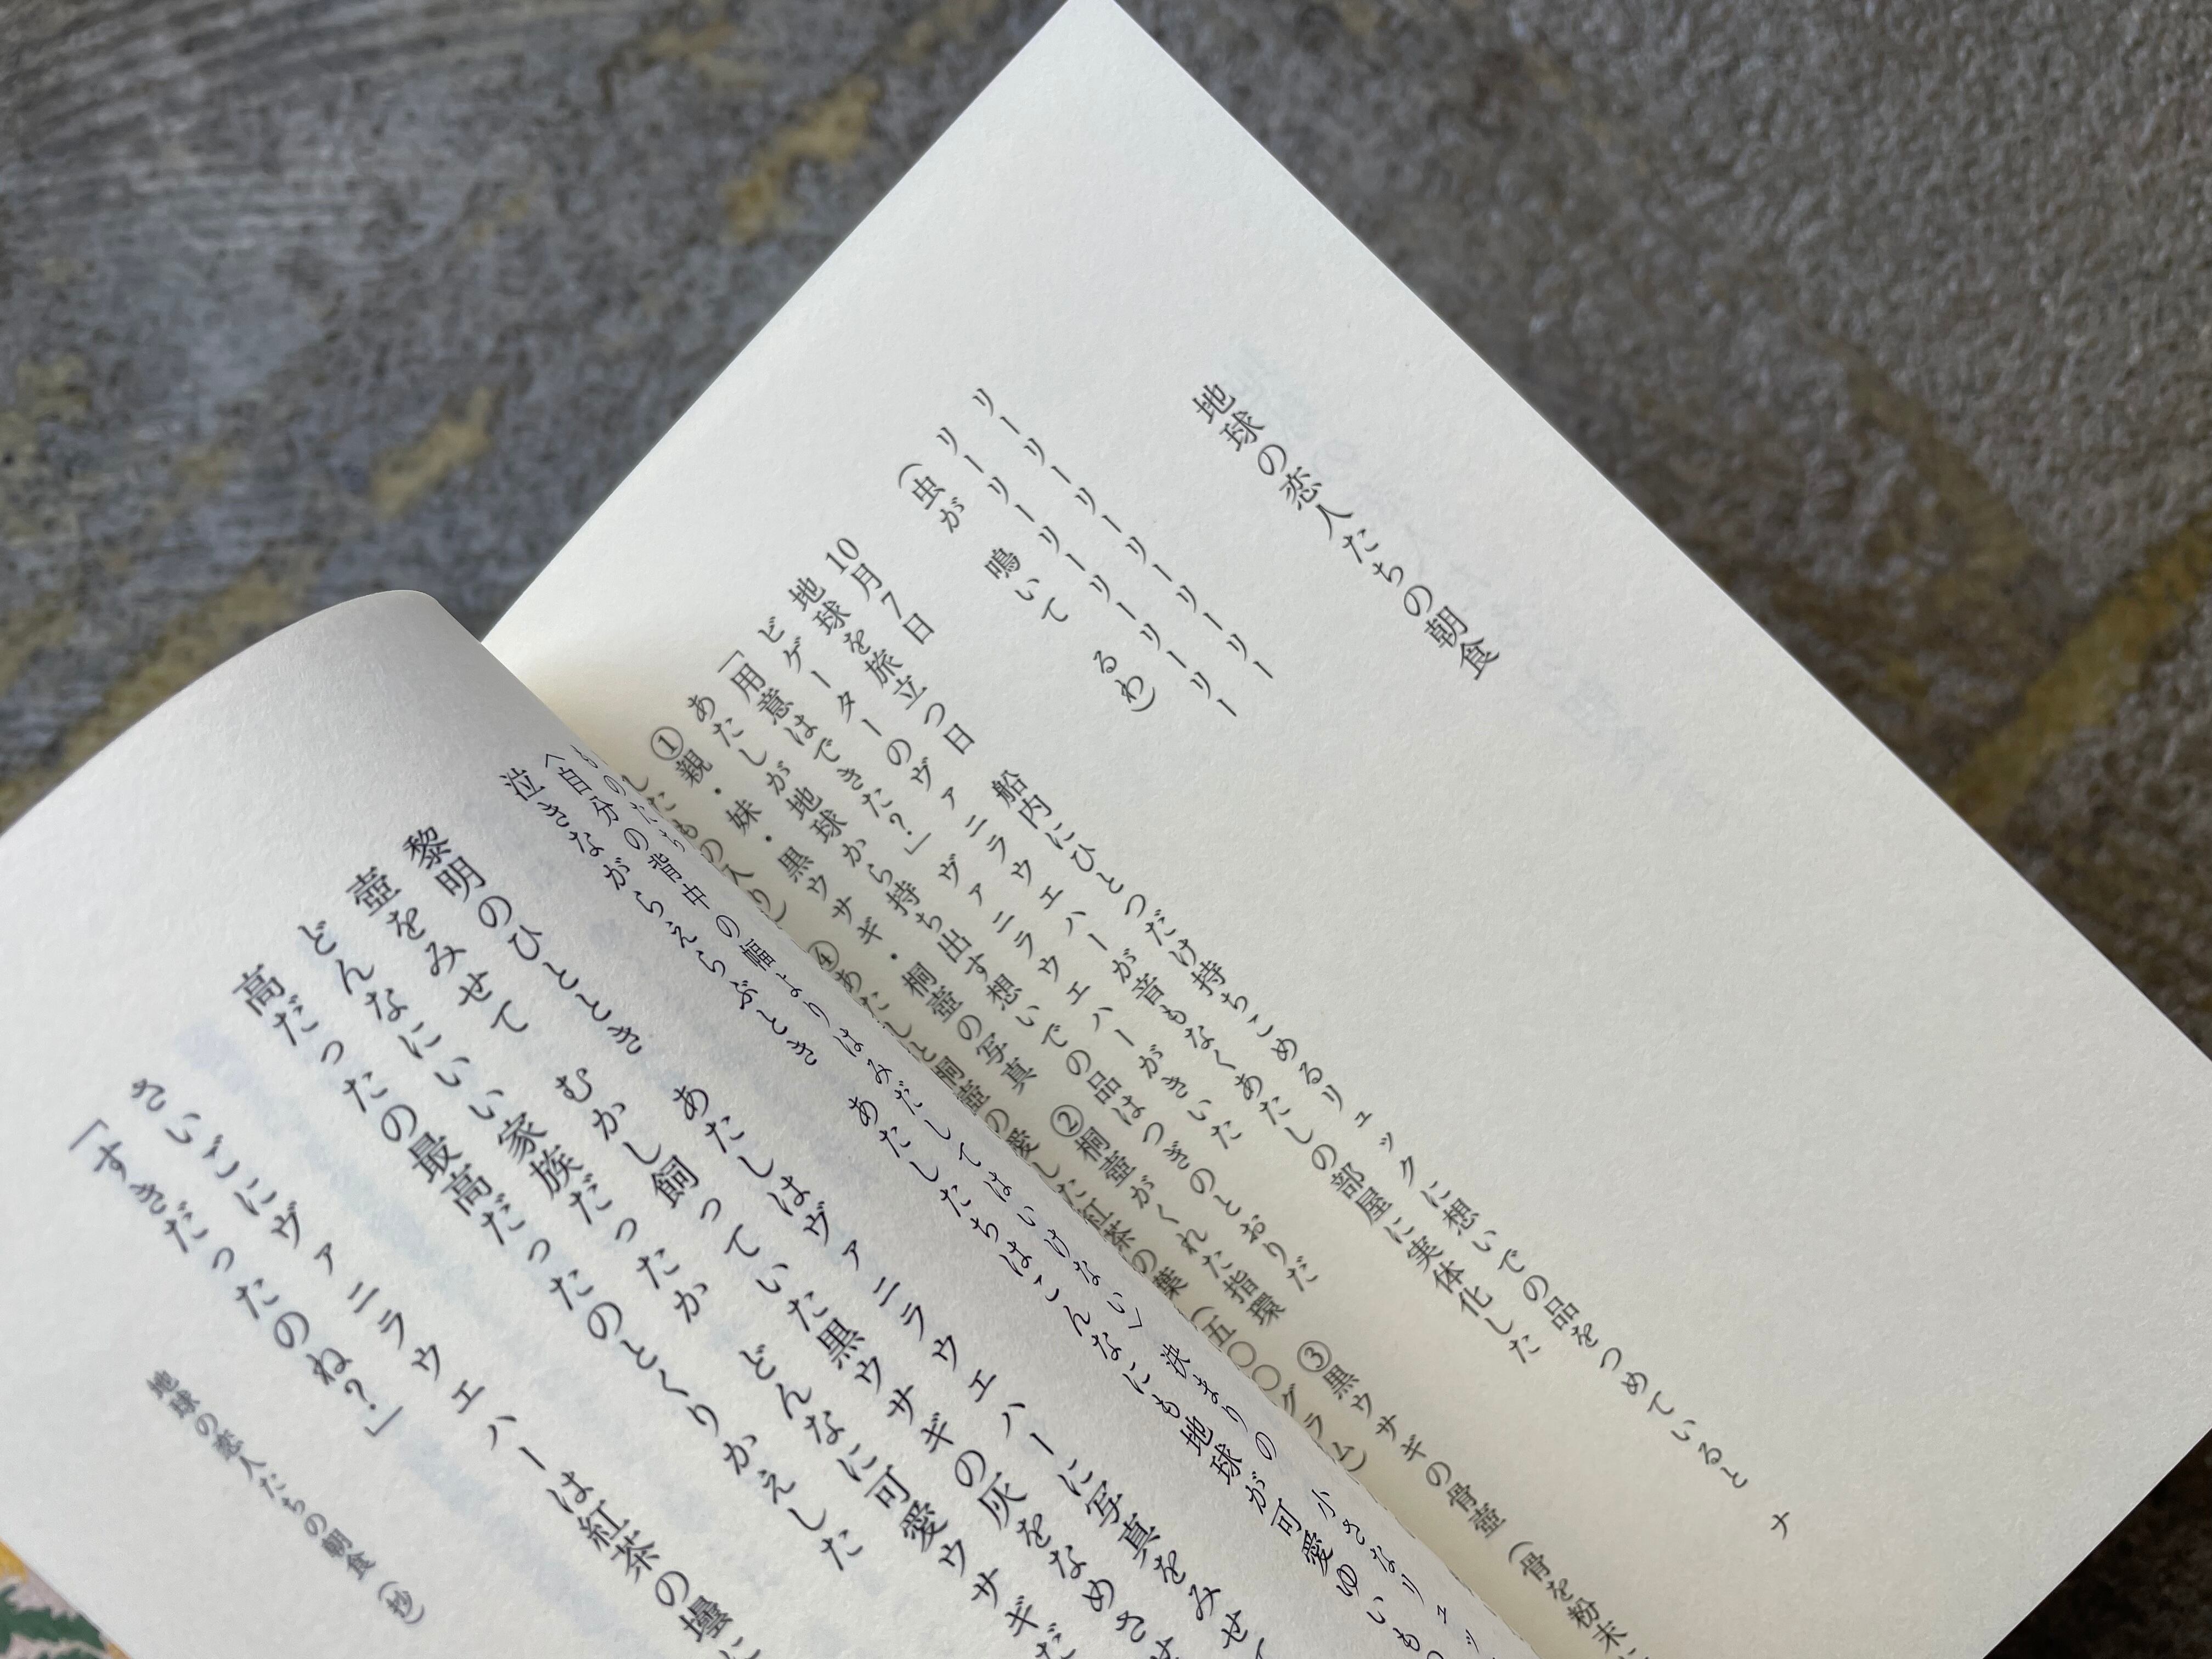 地球の恋人たちの朝食
リーリーリーリーリーリー
リーリーリーリーリーリー
（虫が　鳴いて　　るわ）
10月7日
地球を旅立つ日　船内にひとつだけ持ちこめるリュックに想いでの品をつめていると　ナ
ビゲーターのヴァニラウェハーが音もなくあたしの部屋に実体化した
「用意はできた？」　ヴァニラウェハーがきいた
あたしが地球から持ち出す想いでの品はつぎのとおりだ
①親・妹・黒ウサギ・桐壺の写真　②桐壺がくれた指環　③黒ウサギの骨壺（骨を粉末に
したもの入り）　④あたしと桐壺の愛した紅茶の葉（五〇〇グラム）
〈自分の背中の幅よりはみだしてはいけない〉　決まりの　小さなリュッ
泣きながらえらぶとき　あたしたちはこんなにも地球が可愛ゆいも
黎明のひととき　あたしはヴァニラウェハーに写真をみせて
壺をみせて　むかし飼っていた黒ウサギの灰をなめさせ
どんなにいい家族だったか　どんなに可愛ウサギだ
高だったの最高だったのとくりかえした
さいごにヴァニラウェハーは紅茶の壜に
「すきだったのね？」
地球の恋人たちの朝食（抄）